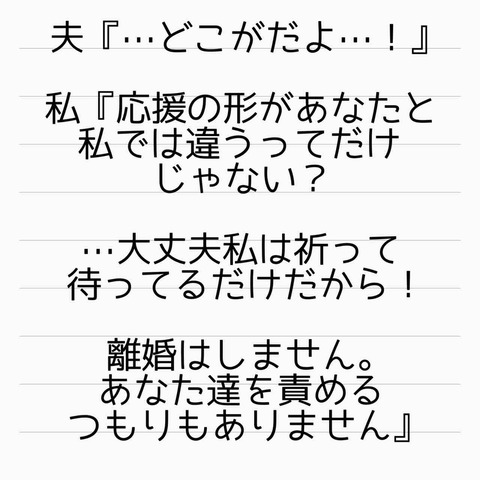 夫『…どこがだよ…！』
私『応援の形があなたと
私では違うってだけ
じゃない？
…大丈夫私は祈って
待ってるだけだから！
離婚はしません。
あなた達を責める
つもりもありません』